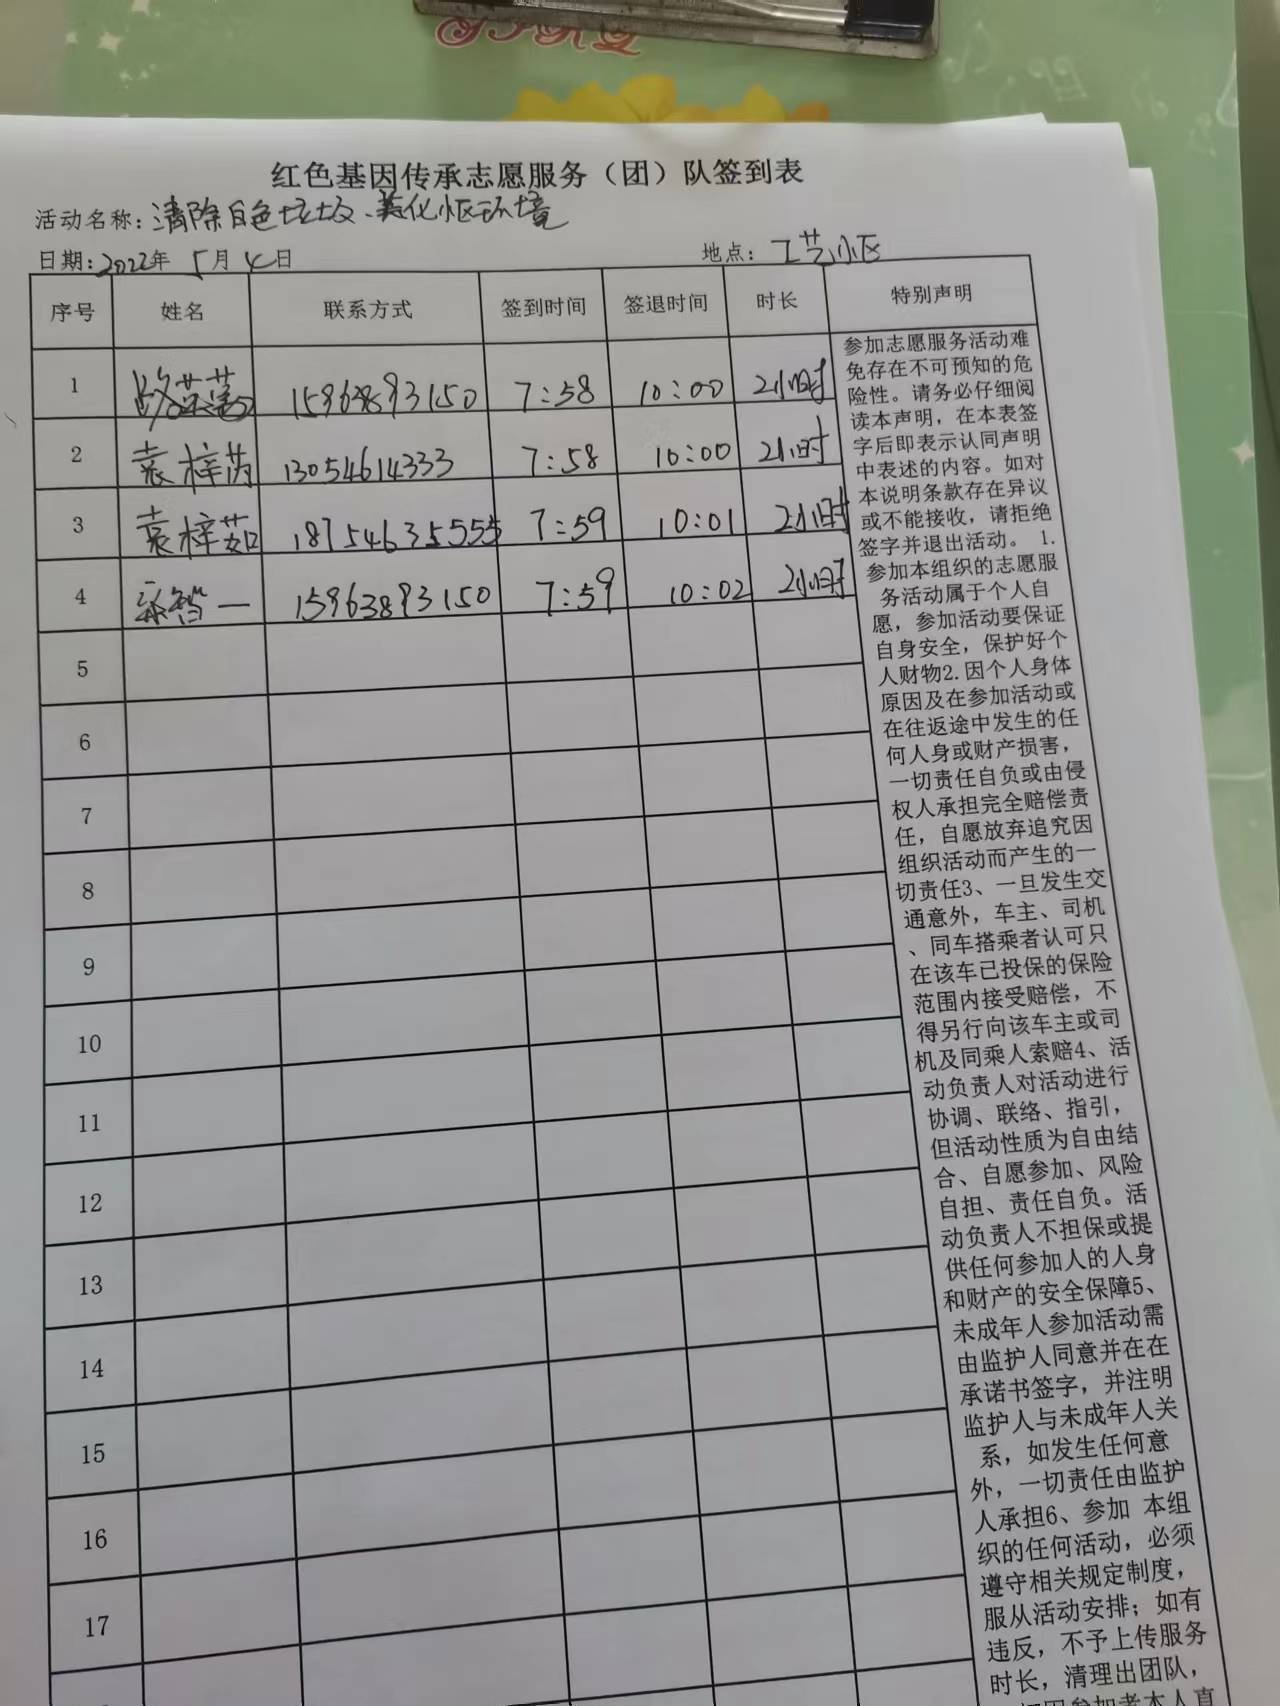 红色基因传承志愿服务（团）队签到表
活动名称：清除白色垃圾、美化小区环境
日期：2022年 5月 4日 地点：工艺小区
序号 姓名 联系方式 签到时间 签退时间 时长 特别声明
1 15963893150 7:58 10:00 2小时
2 袁梓芮 13054614333 7:58 10:00 2小时
3 袁梓茹 18754635555 7:59 10:01 2小时
4 一 15963893150 7:59 10:02 2小时
5
6
7
8
9
10
11
12
13
14
15
16
17
参加志愿服务活动难
免存在不可预知的危
险性。请务必仔细阅
读本声明，在本表签
字后即表示认同声明
中表述的内容。如对
本说明条款存在异议
或不能接收，请拒绝
签字并退出活动。 1.
参加本组织的志愿服
务活动属于个人自
愿，参加活动要保证
自身安全，保护好个
人财物2.因个人身体
原因及在参加活动或
在往返途中发生的任
何人身或财产损害，
一切责任自负或由侵
权人承担完全赔偿责
任，自愿放弃追究因
组织活动而产生的一
切责任3、一旦发生交
通意外，车主、司机
、同车搭乘者认可只
在该车已投保的保险
范围内接受赔偿，不
得另行向该车主或司
机及同乘人索赔4、活
动负责人对活动进行
协调、联络、指引，
但活动性质为自由结
合、自愿参加、风险
自担、责任自负。活
动负责人不担保或提
供任何参加人的人身
和财产的安全保障5、
未成年人参加活动需
由监护人同意并在在
承诺书签字，并注明
监护人与未成年人关
系，如发生任何意
外，一切责任由监护
人承担6、参加 本组
织的任何活动，必须
遵守相关规定制度，
服从活动安排；如有
违反，不予上传服务
时长，清理出团队，